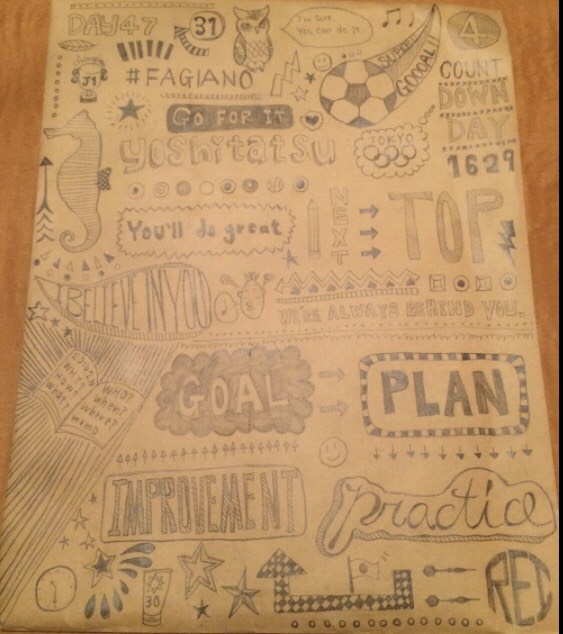 DAY47
31
I'm sure
You can do it.
SUPER
GOOOAL!!
4
COUNT
DOWN
DAY
1629
J1
#FAGIANO
GO FOR IT
yoshitatsu
TOKYO
You'll do great
NEXT
TOP
I BELIEVE IN YOU
WE'RE ALWAYS BEHIND YOU.
WHY?
HOW?
WHAT?
WHO?
WHEN?
WHERE?
MEMO
GOAL
PLAN
IMPROVEMENT
practice
30
REC